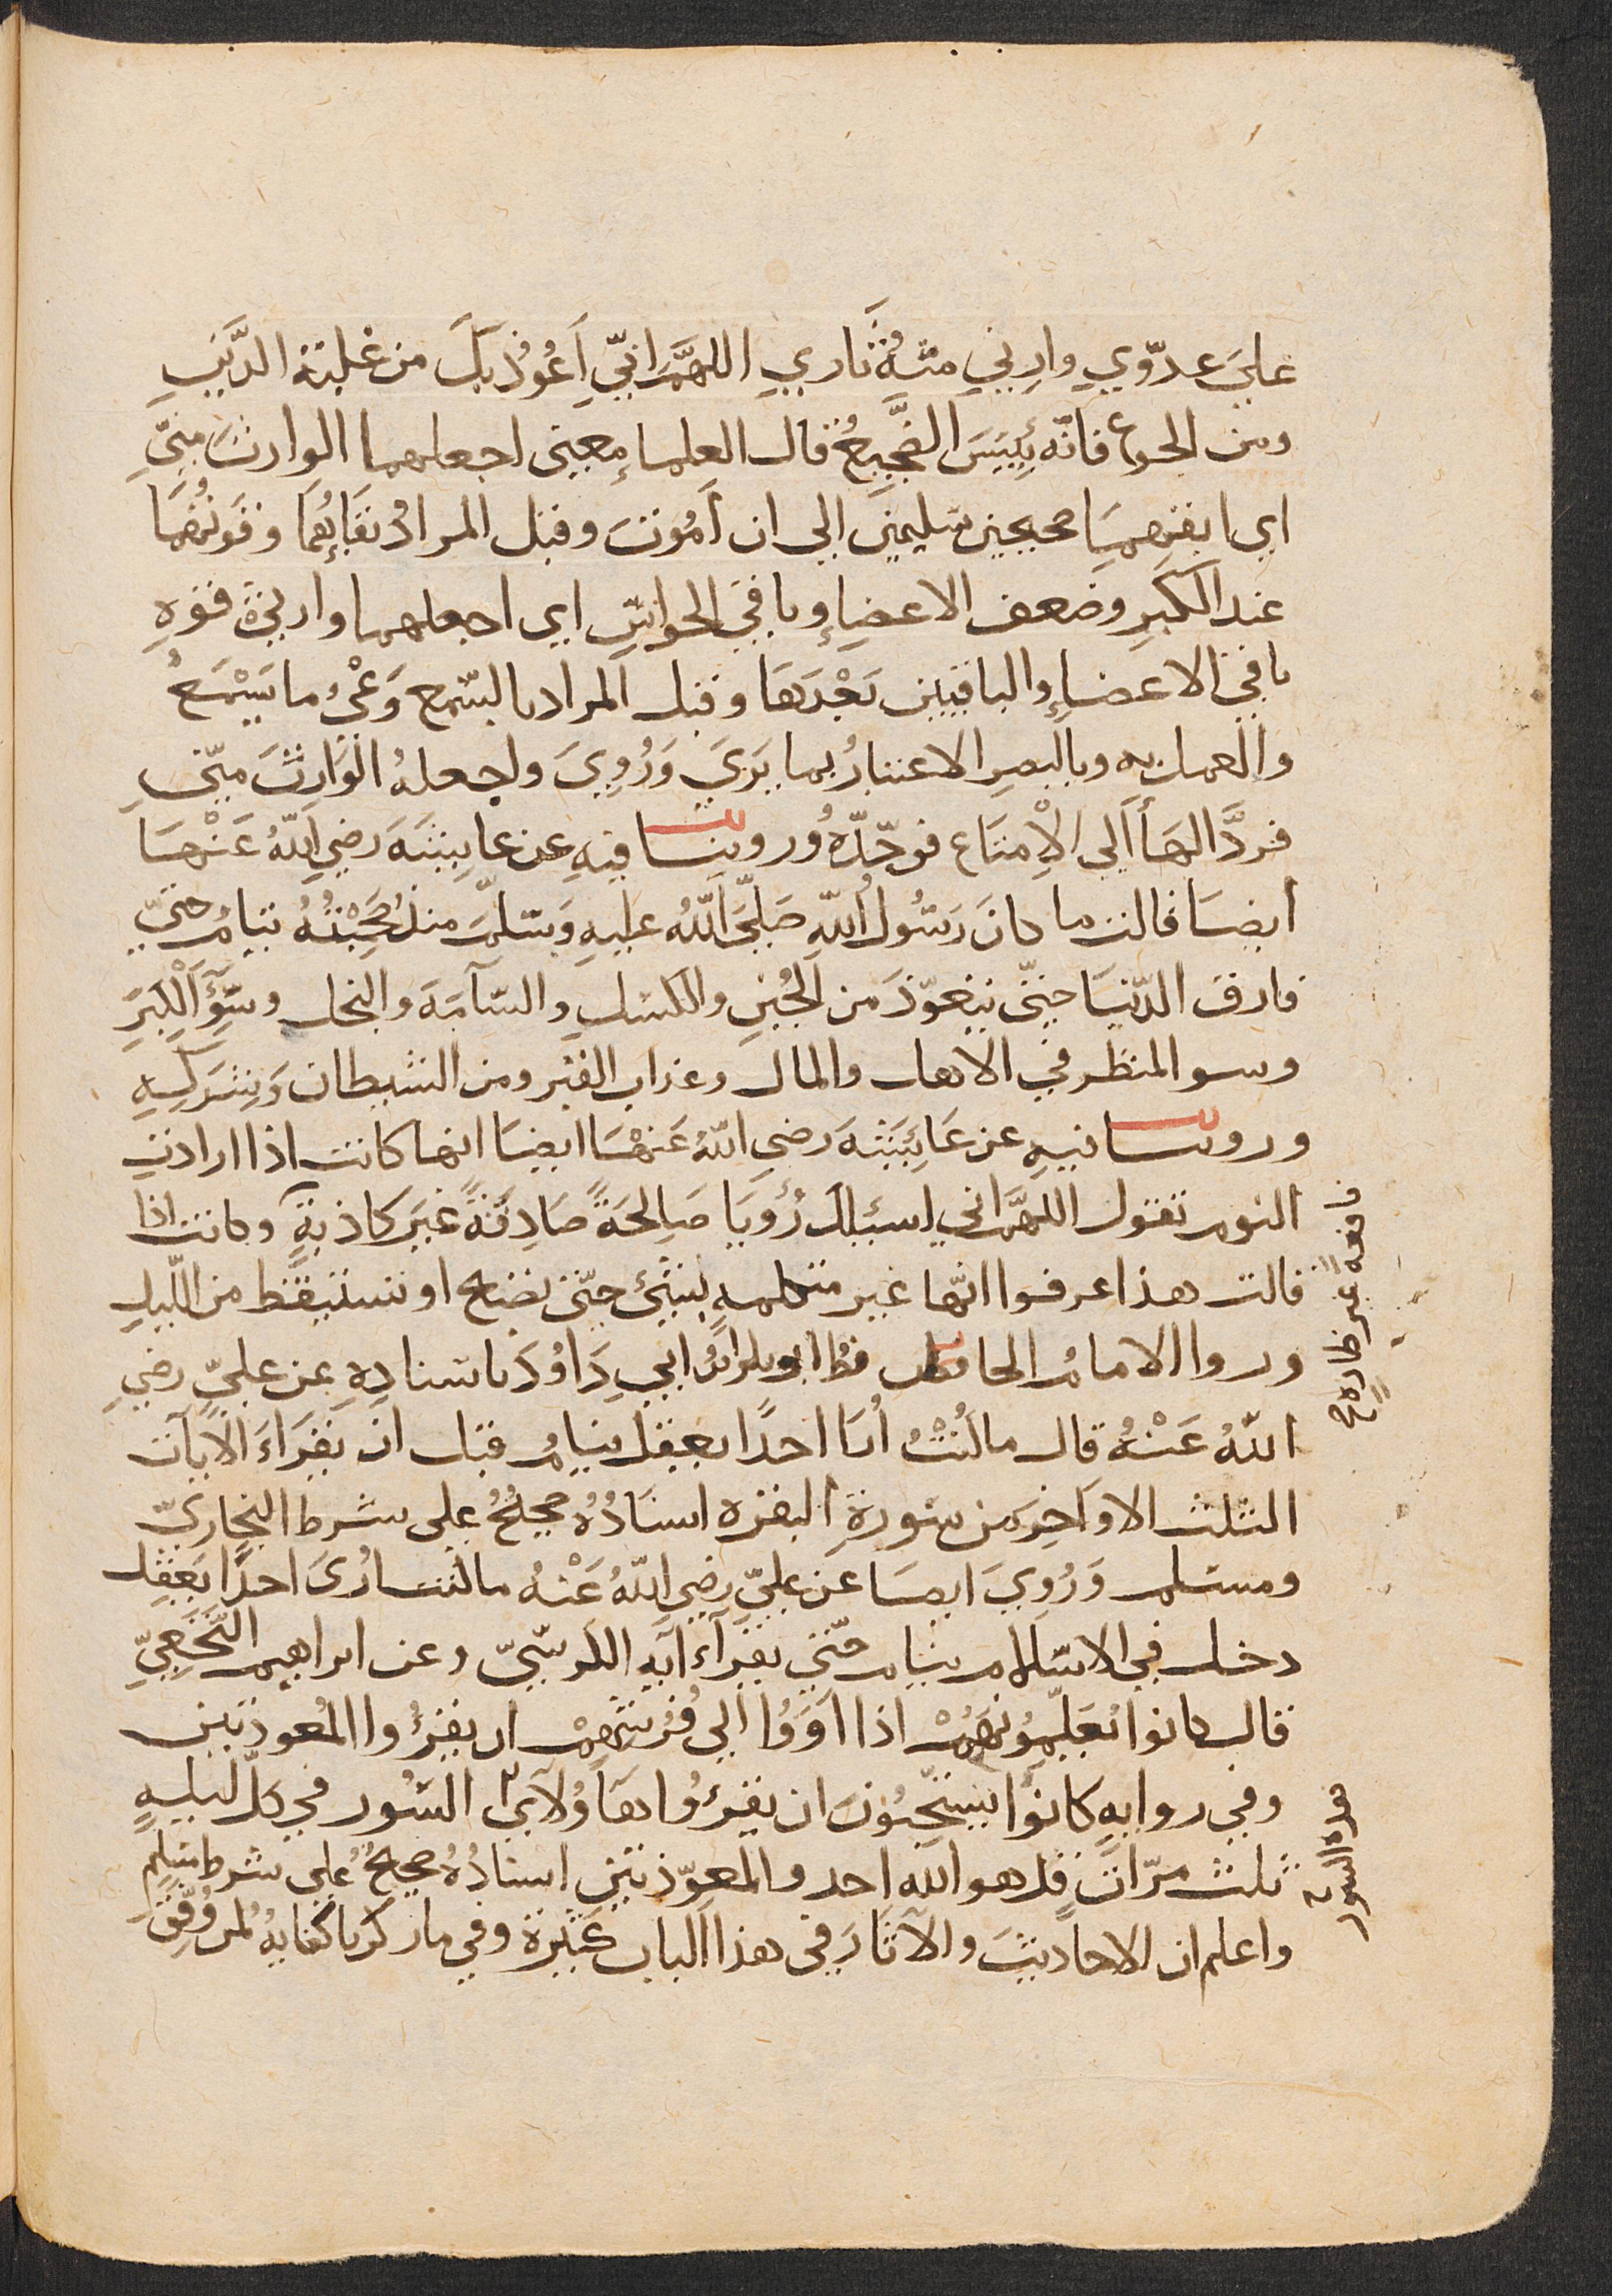 علي عدوّي وارني منهُ ثَاري اللهمَّ انّي اَعُوذ بكَ من غلبة الدَّينِ
ومن الجوع فانّه بِئيسَ الضَّجِيعُ قال العلماءِ معني اجعلهما الوارثَ منّي
اي ابقهما صحيحين سليمين الي ان اَمُوتَ وقيل المرادُ بقَائِهُمَا وقوتُهُمَا
عند الكبرِ وضعف الاعضاءِ وباقي الحواسِّ اي اجعلهما وارثيْ قوةِ
باقي الاعضاءِ والباقيين بَعْدَهَا وقيل المراد بالسّمع وَعْيُ ما يَسْمَعُ
والعمل به وبالبصرِ الاعتبارُ بما يَرَي وَرُوِيَ واجعلهُ الوَارِثَ منّي
فردَّ الهَأ اَلي الْاِمتَاع فوحّدَهُ وروينا فيهِ عن عايِشَةَ رضي اللهُ عَنْهَا
أيضا قالت ما كانَ رَسُولُ اللهِ صَلَّي اللهُ عليهِ وَسلَّمَ منذُ صَحِبْتُهُ ينامُ حتّي
فارق الدّنيَا حتّي يتعوّذَ من الجُبنِ والكسلِ والسّآمَةِ والبخل وسُوٓءِ الْكِبَرِ
وسو المنظرِ في الاهل والمال وعذاب القبر ومن الشيطان وَشركِهِ
وروينا فيهِ عن عَائِشَةَ رضي اللهُ عَنهَا ايضا انها كانت اذا ارادتِ
النوم تقول اللهمَّ اني اسئلكَ رُؤيَا صَالِحَةً صَادِقَةً غيرَ كاذبةٍ وكانت اذا
قالت هذا عرفوا انّها غير متكلمهٍ بشئٍ حتّي تصبح او تستيقظ من اللّيلِ
وروا الامامُ الحافظ ابو بكر ابنُ ابي دَاوُدَ باسنادِهِ عن عليٍّ رضي
اللهُ عَنْهُ قال ما كُنْتُ اُرَا احدًا يعقل ينامُ قبل ان يقرَاءَ الآياتِ
الثلث الاوَاخِر من سُورةِ البقره اسنَادُهُ صحيحٌ علي شرط البخاريّ
ومسلم وَرُوِيَ ايضا عن عليٍّ رضي اللهُ عَنْهُ ما كنت ارُيَ احدًا يَعقِل
دخل في الاسلام ينام حتّي يقرَآءَ آيةِ الكرسّيّ وعن ابراهيم النّخَعِيِّ
قال كانوا يُعَلِّمُونَهُمْ اذا اَوَوُا الي فُرُشِهِمْ ان يقرؤُا المُعوذتين
وفي روايهٍ كانوُا يستحبّونَ ان يقرءُوا هَآؤُلآءِ السُور في كلّ ليلةٍ
ثلث مرّاتٍ قل هو الله احد والمعوّذتينِ اسنادُهُ صحيحٌ علي شرط مسلمٍ
واعلم ان الاحاديثَ والآثَارَ في هذا الباب كثيرة وفي ما ذكرنا كفايهٌ لمن وُفِّقَ